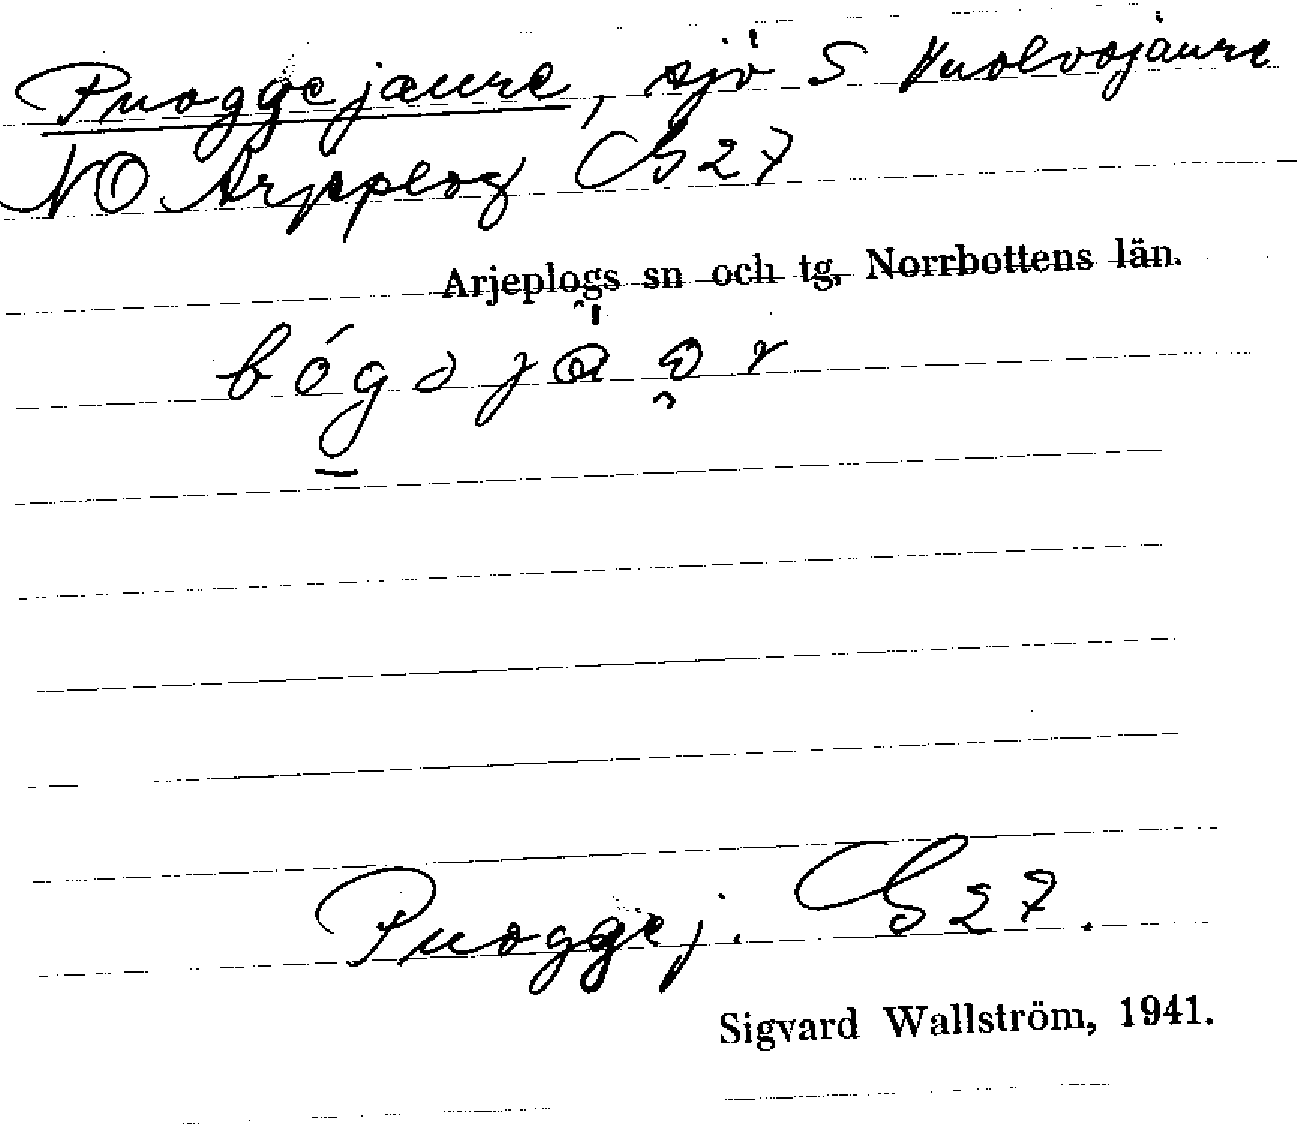 Puoggejaure, sjö S Kuolvojaure
NO Arjeplog GS 27
Arjeplogs sn och tg, Norrbottens län.
Puoggej. GS 27.
Sigvard Wallström, 1941.